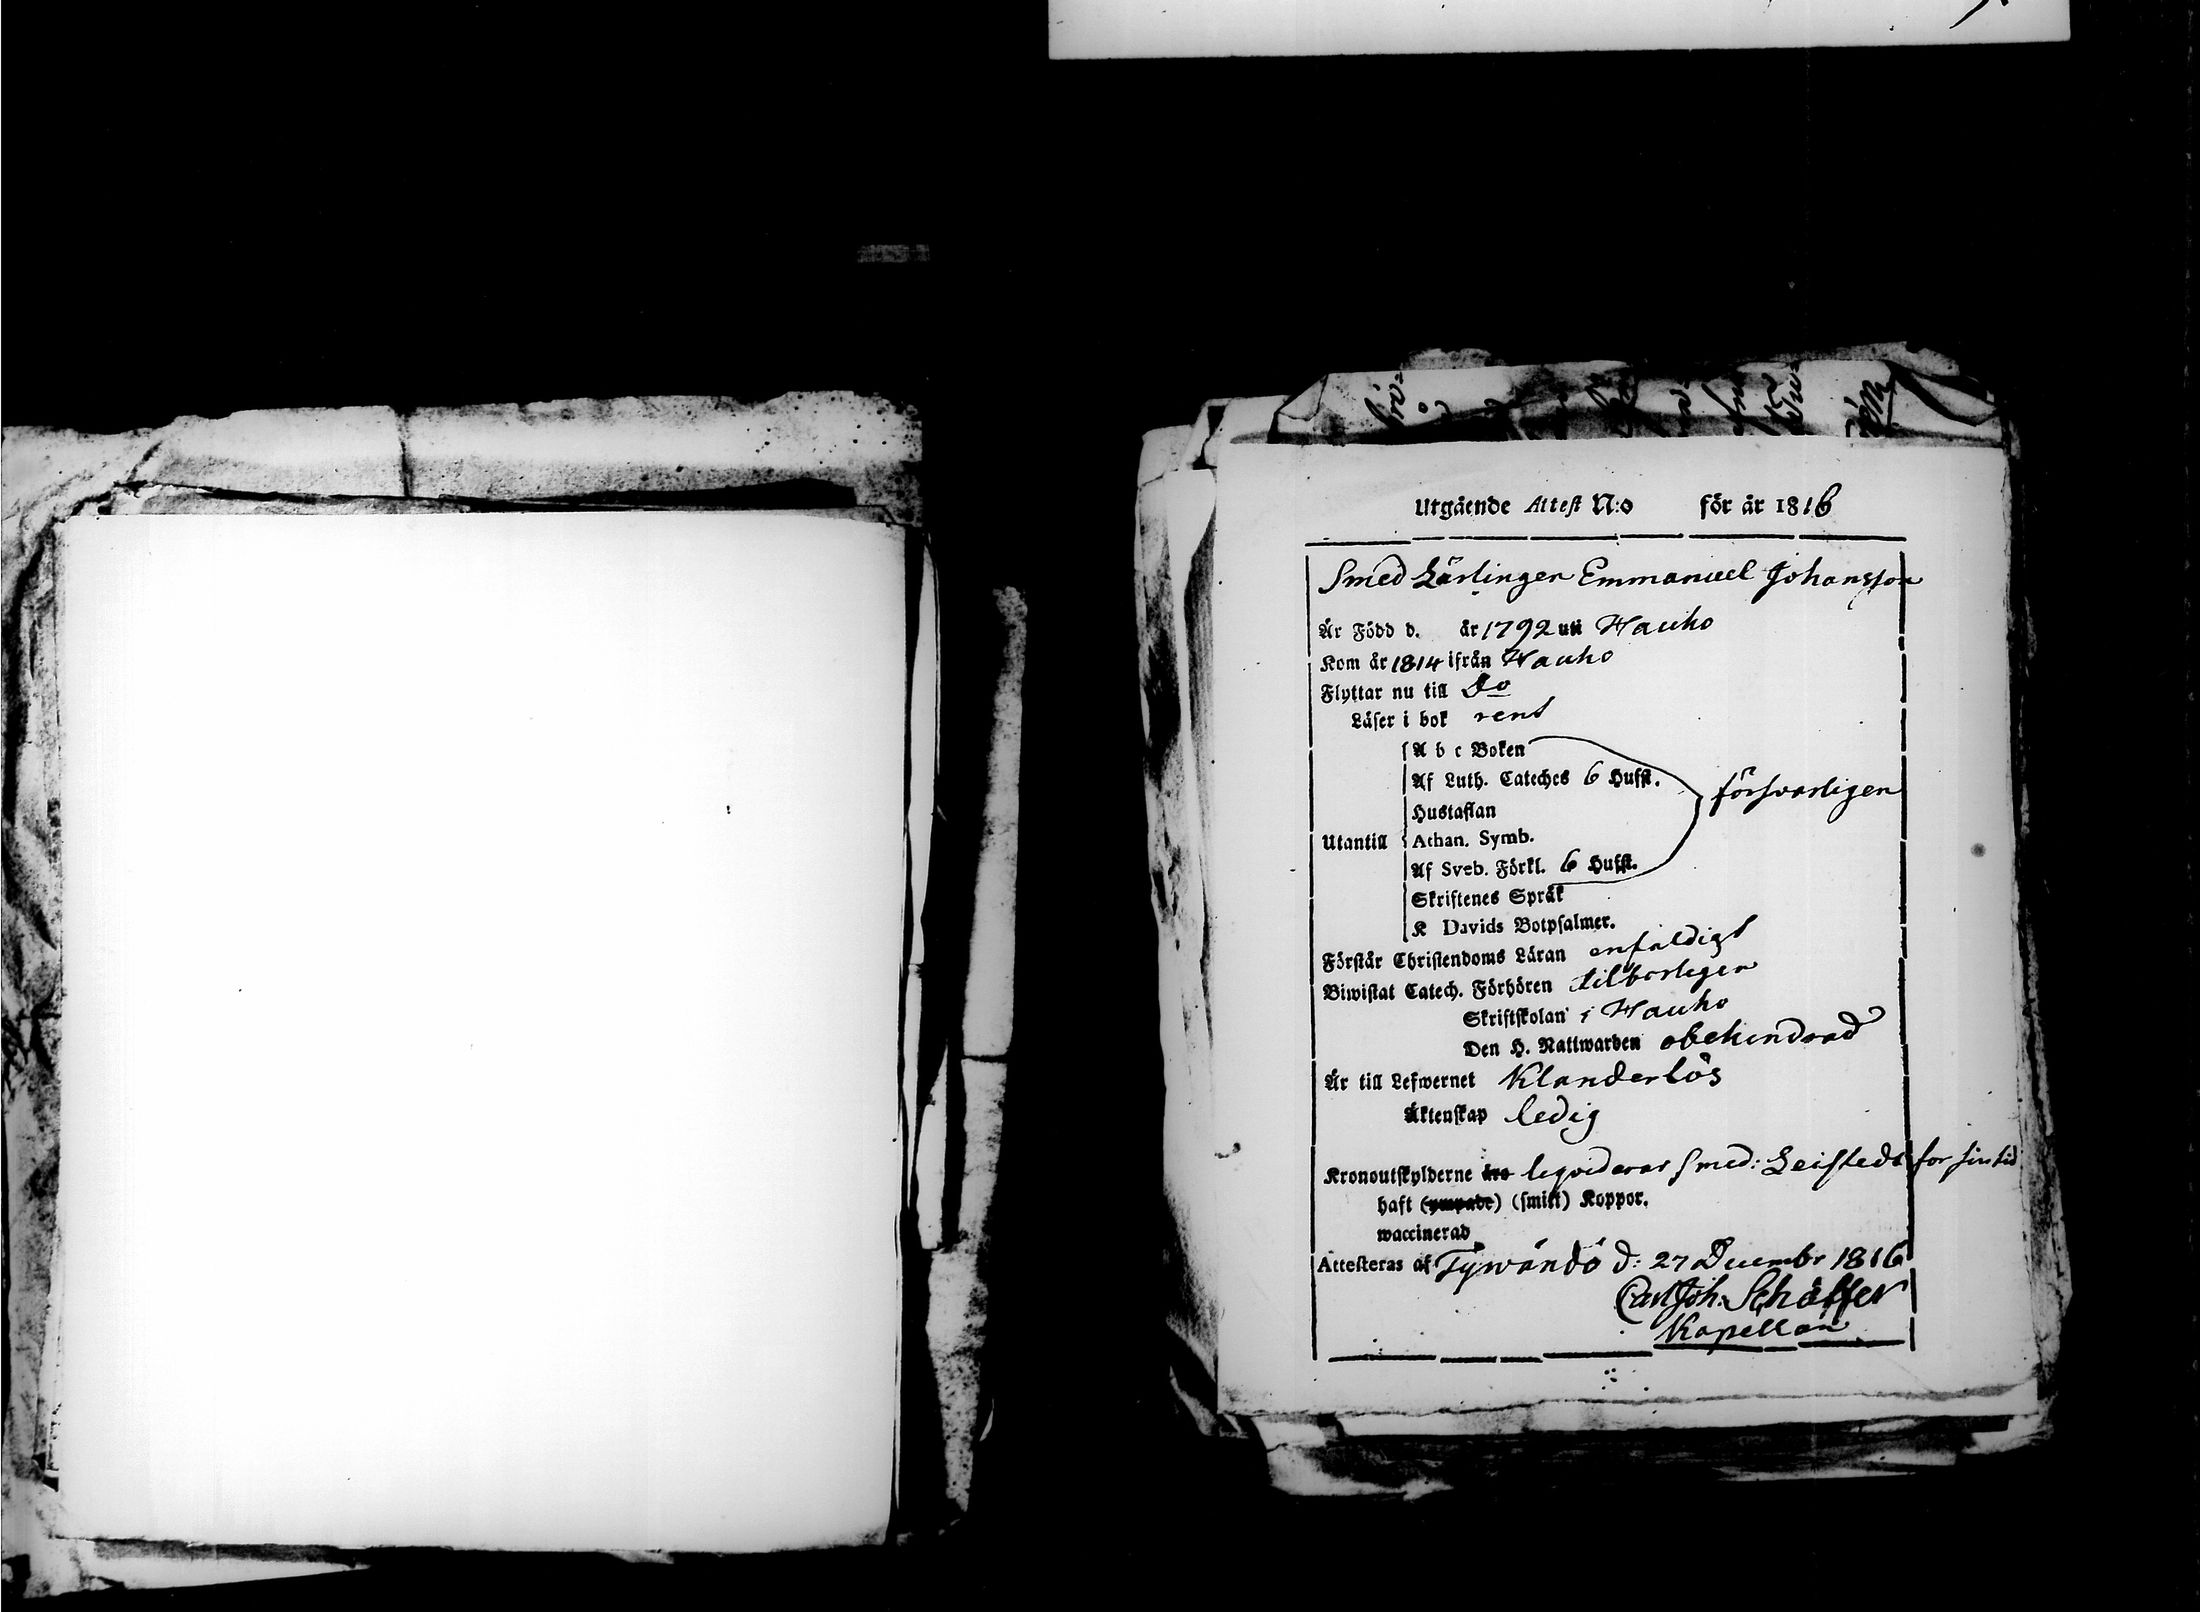 Utgående Attest N:o för år 1816
Smed Lärlingen Emmanuel Johansson
Är Född d. år 1792 uti Hauho
Kom år 1814 ifrån Hauho
Flyttar nu till Do
Läser i bok rent
A b c Boken
Af Luth. Cateches 6 Hufst.
försvarligen
Hustaflan
Utantill Athan. Symb.
Af Sveb. Förkl. 6 Hufst.
Skriftenes Språk
K Davids Botpsalmer.
Förstår Christendoms Läran enfaldigt
Biwistat Catech. Förhören tilbörligen
Skriftskolan i Hauho
Den H. Nattwarden obehindrad
Är till Lefwernet Klanderlös
Äktenskap ledig
Kronoutskylderne äro liqviderar Smed: Leistedt för sin tid
haft (ympade) (smitt) Koppor.
waccinerad
Attesteras af Tywändö d: 27 Decembr 1816
Carl Joh: Schäffer
Kapellan